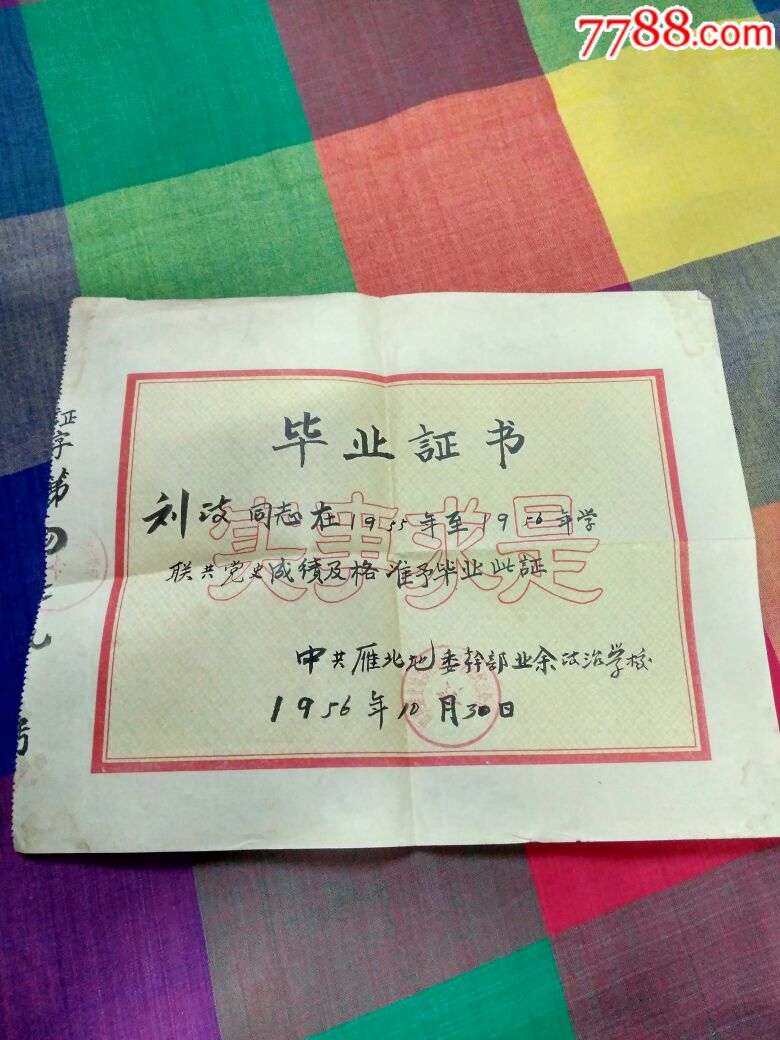 7788.com
毕业証书
刘 同志在1955年至1956年学
联共党史成绩及格准予毕业此証
实事求是
中共雁北地委幹部业余政治学校
1956年10月30日
証字第四 九 号